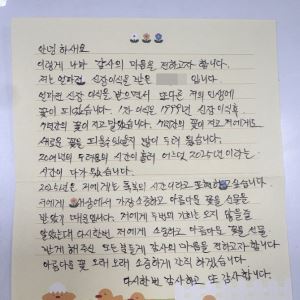 안녕 하세요
이렇게 나마 감사의 마음을 전하고자 합니다.
저는 얼마전 신장이식을 받은 입니다.
얼마전 신장 이식을 받으면서 또다른 저의 인생에
꽃이 피었습니다. 1차 이식은 1999년 신장 이식후
꽃이 지고 말았습니다. 꽃이 지고 저에게도
새로운 꽃을 피울수 있을지 많이 두려웠습니다.
20여년의 두려움의 시간이 흘러 어느덧 2025년 이라는
시간이 다가 왔습니다.
2025년은 저에게는 축복의 시간이라고 싶습니다.
저에게 세상에서 가장 소중하고 아름다운 꽃을 선물을
받았기 때문입니다. 저에게 두번의 기회는 오지 않을줄
알았는데 다시한번 저에게 소중하고 아름다운 꽃을 선물
받게 해주신 모든분들께 감사의 마음을 전하고자합니다
아름다운 꽃 오래 오래 소중하게 간직 하겠습니다.
다시한번 감사하고 또 감사합니다.